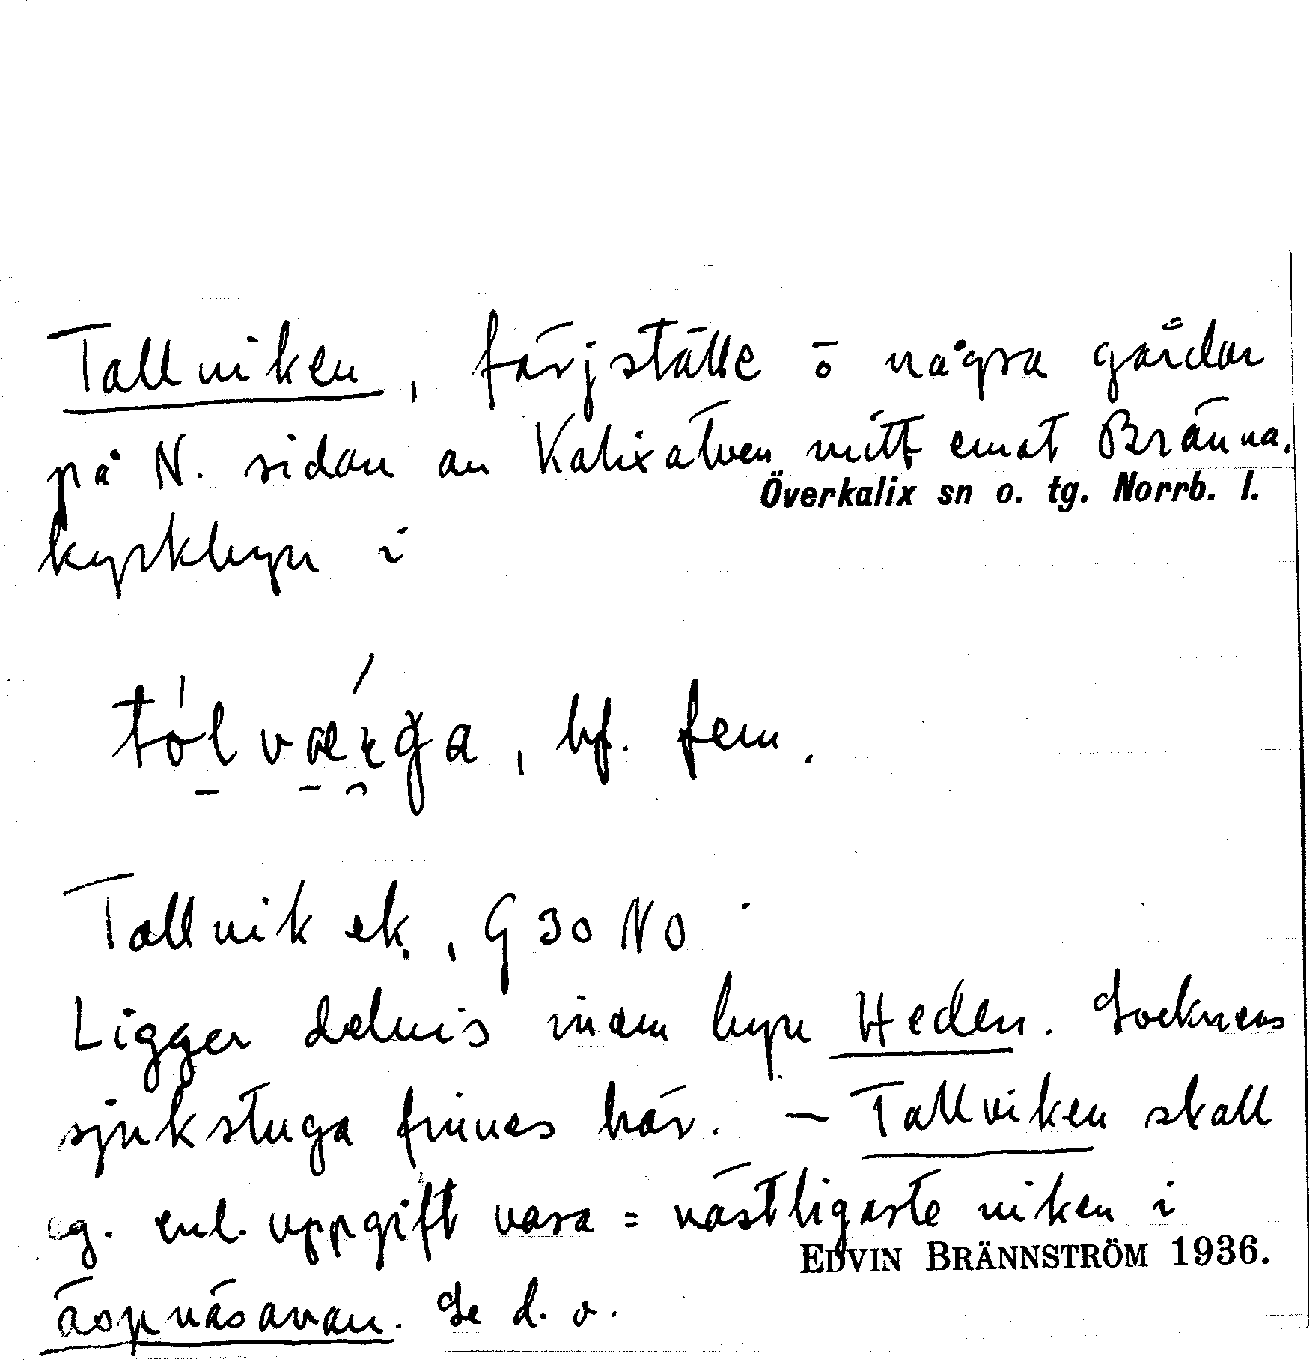 Tallviken, färjställe o några gårdar
på N. sidan av Kalixälven mitt emot Bränna.
Överkalix sn o. tg. Norrb. l.
kyrkbyn i
bf. fem.
Tallvik ek, G 30 NO
Ligger delvis inom byn Heden. Socknens
sjukstuga finnes här. — Tallviken skall
eg. enl. uppgift vara = västligaste viken i
EDVIN BRÄNNSTRÖM 1936.
äspnäsavan. Se d. o.